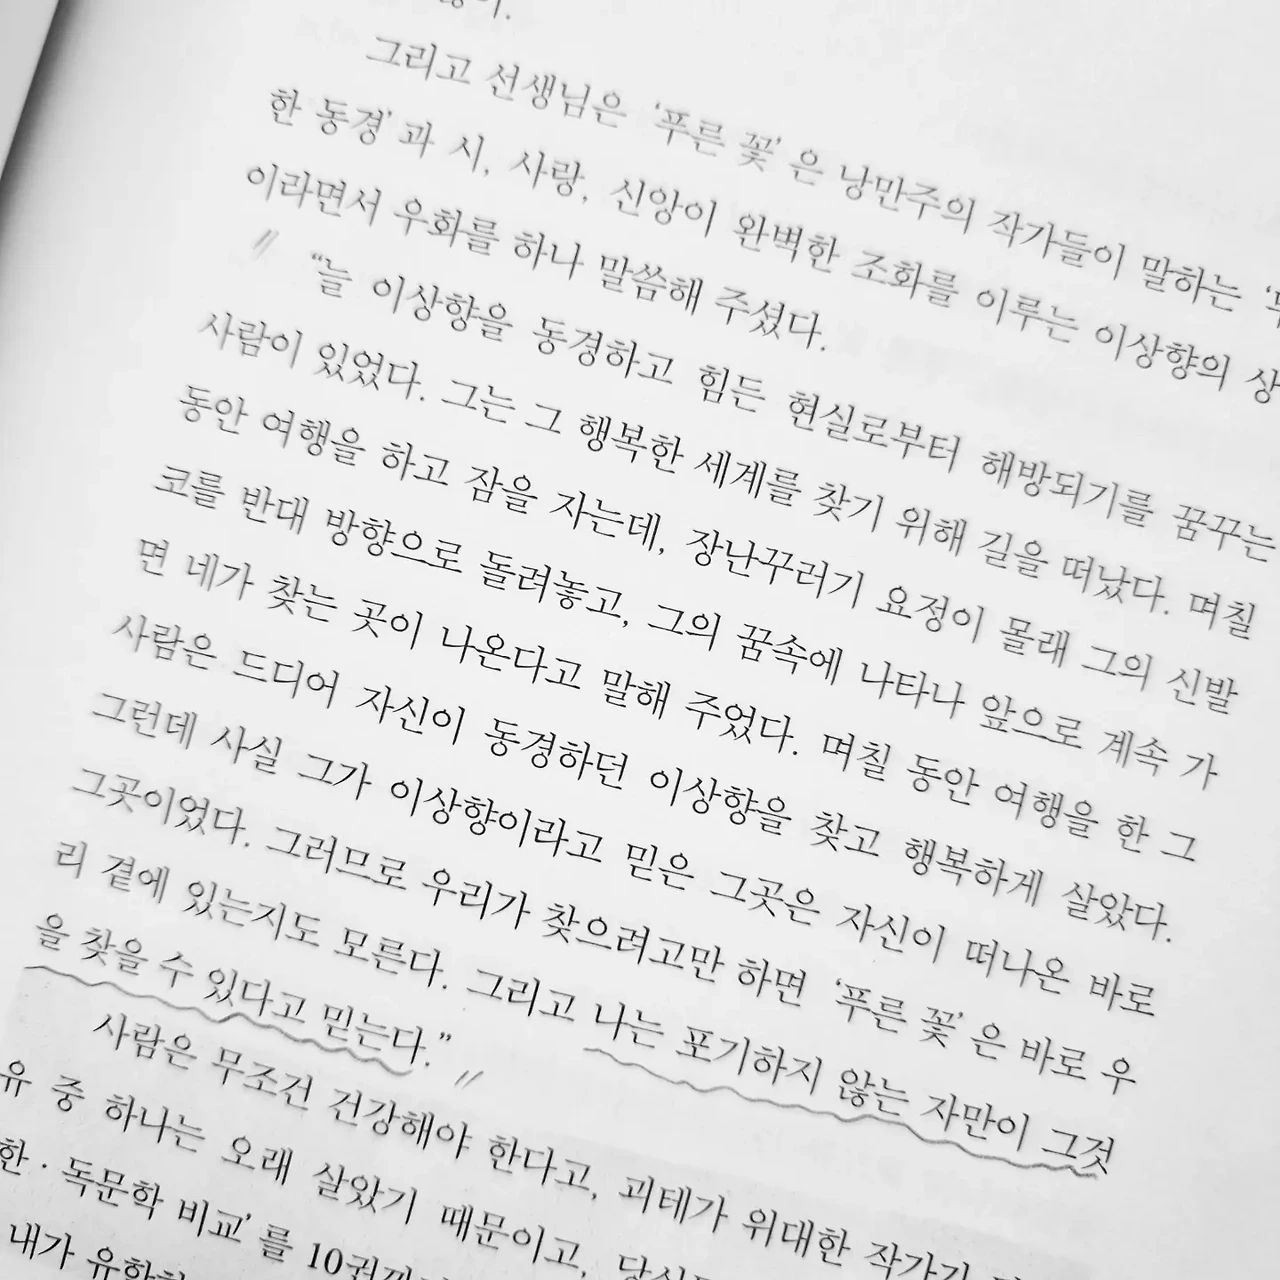 그리고 선생님은 '푸른 꽃'은 낭만주의 작가들이 말하는
한 동경'과 시, 사랑, 신앙이 완벽한 조화를 이루는 이상향의 상
이라면서 우화를 하나 말씀해 주셨다.
"늘 이상향을 동경하고 힘든 현실로부터 해방되기를 꿈꾸는
사람이 있었다. 그는 그 행복한 세계를 찾기 위해 길을 떠났다. 며칠
동안 여행을 하고 잠을 자는데, 장난꾸러기 요정이 몰래 그의 신발
코를 반대 방향으로 돌려놓고, 그의 꿈속에 나타나 앞으로 계속 가
면 네가 찾는 곳이 나온다고 말해 주었다. 며칠 동안 여행을 한 그
사람은 드디어 자신이 동경하던 이상향을 찾고 행복하게 살았다.
그런데 사실 그가 이상향이라고 믿은 그곳은 자신이 떠나온 바로
그곳이었다. 그러므로 우리가 찾으려고만 하면 '푸른 꽃'은 바로 우
리 곁에 있는지도 모른다. 그리고 나는 포기하지 않는 자만이 그것
을 찾을 수 있다고 믿는다."
사람은 무조건 건강해야 한다고, 괴테가 위대한 작가가
유 중 하나는 오래 살았기 때문이고,
한·독문학 비교'를 10권까
내가 유학